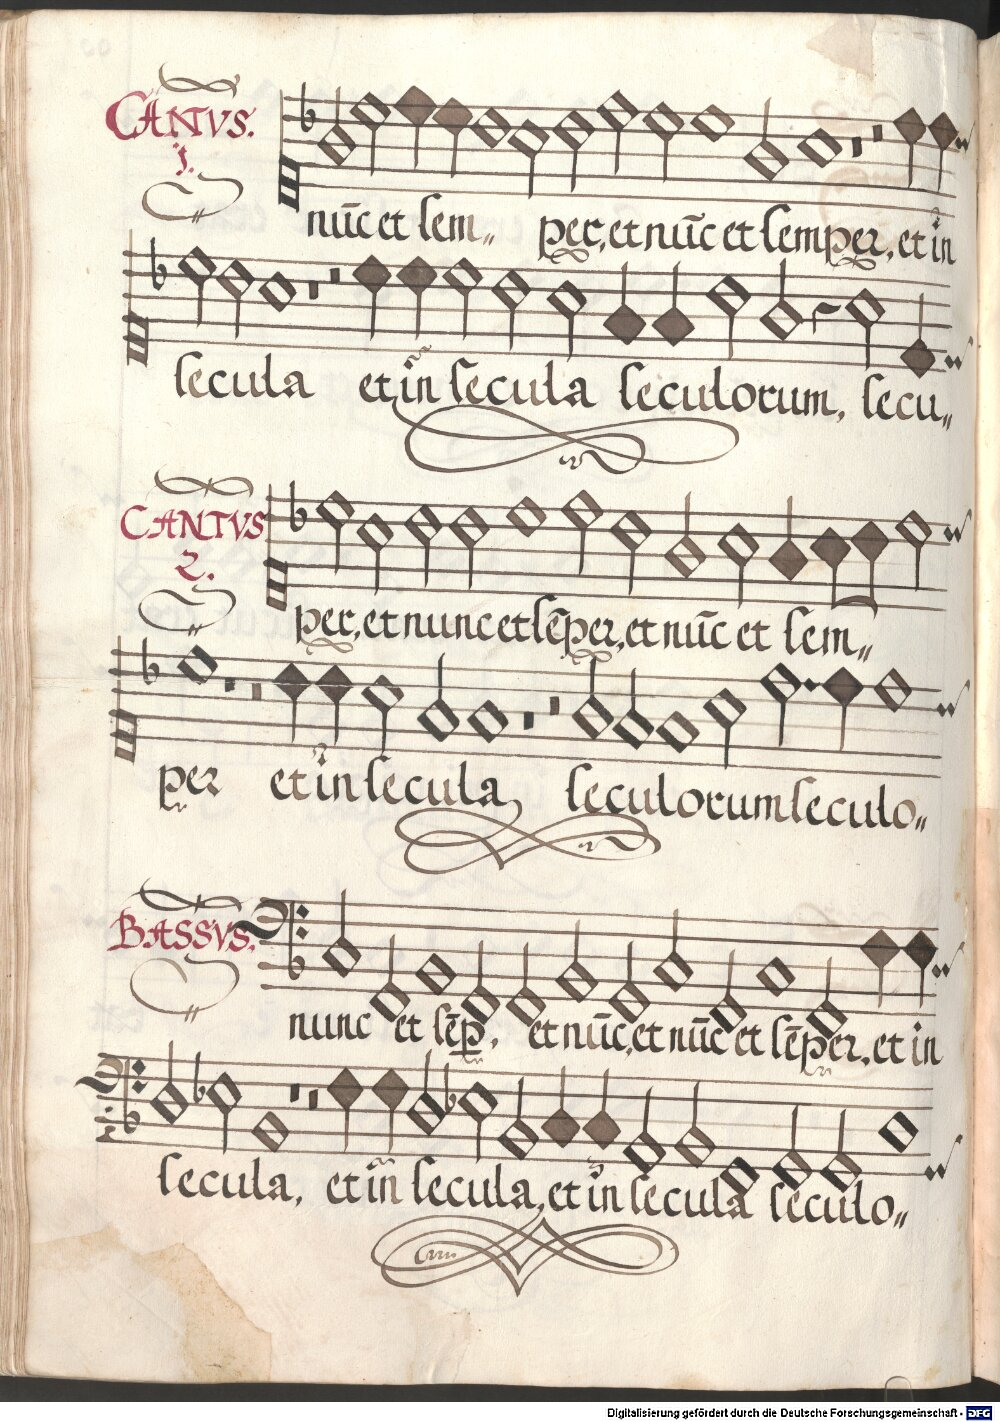 CANTVS.
1.
nūc et sem„ per, et nūc et semper, et in
secula et in secula seculorum, secu„
CANTVS
2.
per, et nunc et sēper, et nūc et sem„
per et in secula, seculorum seculo„
BASSVS.
nunc et sēp, et nūc, et nūc et sēper, et in
secula, et in secula, et in secula seculo„
Digitalisierung gefördert durch die Deutsche Forschungsgemeinschaft - DFG